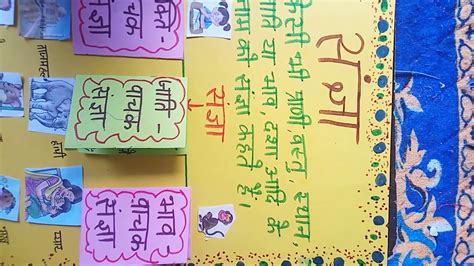 संज्ञा
किसी भी प्राणी, वस्तु, स्थान,
जाति या भाव, दशा आदि के
नाम को संज्ञा कहते हैं।
संज्ञा
वाचक
संज्ञा
जाति -
वाचक
संज्ञा
भाव
वाचक
संज्ञा
हाथी
प्यार